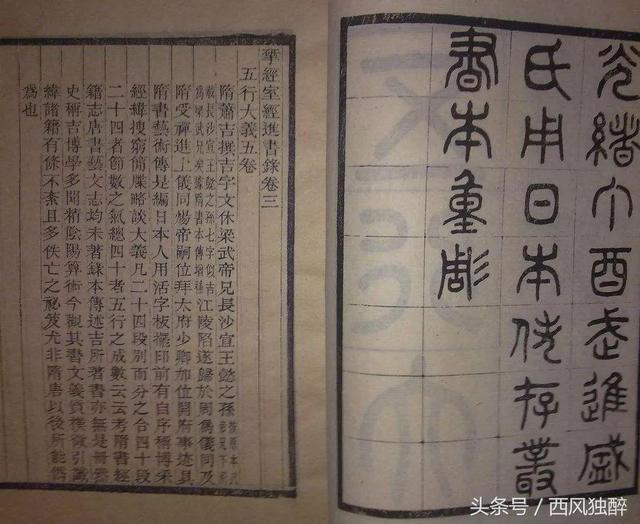 光緒丁酉武進盛
氏用日本佚存叢
書本重彫
揅經室經進書錄卷三
五行大義五卷
隋蕭吉撰吉字文休梁武帝兄長沙宣王懿之孫
載長沙宣王懿之孫七字似吉
為梁武兄矣據隋書本傳增補
江陵陷遂歸於周爲儀同及
隋受禪進上儀同煬帝嗣位拜太府少卿加位開府事迹具
隋書藝術傳是編日本人用活字板擺印前有自序稱博采
經緯搜窮簡牒略談大義凡二十四段別而分之合四十段
二十四者節數之氣總四十者五行之成數云云考隋書經
籍志唐書藝文志均未著錄本傳述吉所著書亦無是冊然
史稱吉博學多聞精陰陽算術今觀其書文義質樸徵引讖
緯諸籍有條不紊且多佚亡之祕笈尤非隋唐以後所能僞
爲也
头条号 / 西风独醉